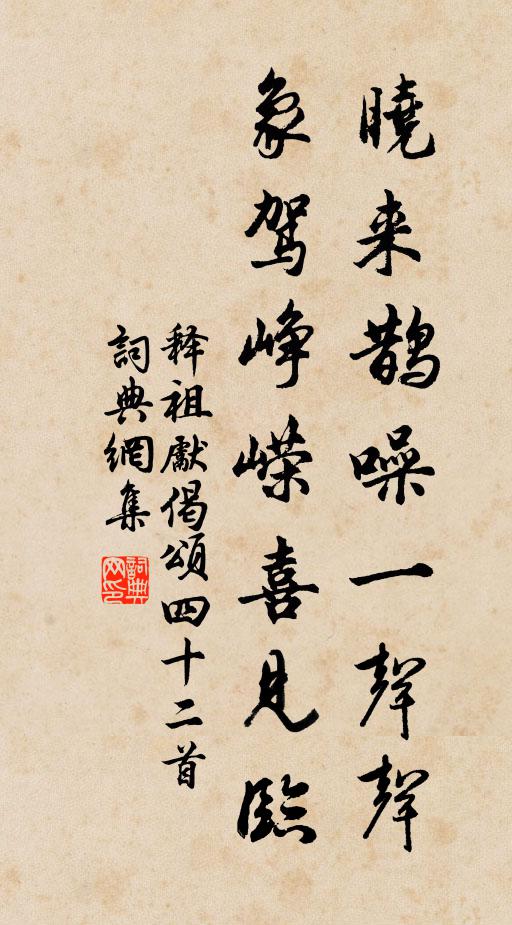 曉来鵲噪一聲聲
象駕峥嶸喜見臨
释祖獻偈頌四十二首
詞典網集
詞典网印